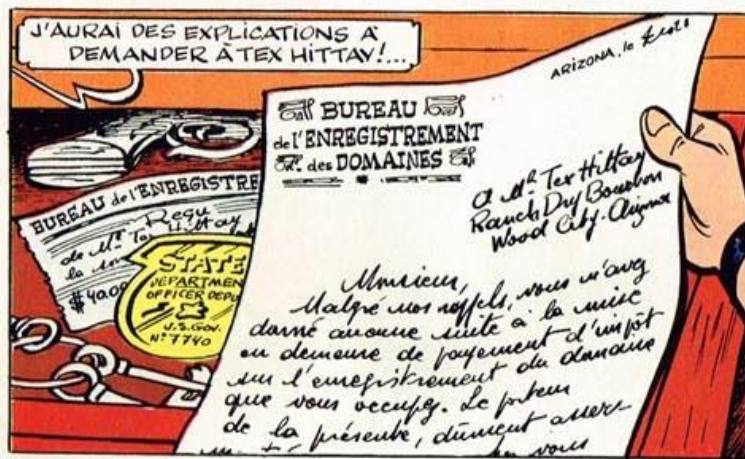 J'AURAI DES EXPLICATIONS À
DEMANDER À TEX HITTAY!...
BUREAU de l'ENREGISTRE
Reçu
de Mr Tex Hittay
la
$ 40.00
STATE
DEPARTMENT
OFFICER DEPU
U.S. GOV.
N° 7740
ARIZONA, le
BUREAU
de l'ENREGISTREMENT
des DOMAINES
A Mr Tex Hittay
Ranch Dry Bourbon
Wood City. Arizona
Monsieur,
Malgré nos rappels, vous n'avez
donné aucune suite à la mise
en demeure de payement d'impôt
sur l'enregistrement du domaine
que vous occupez. Le porteur
de la présente, dûment asser-
vous